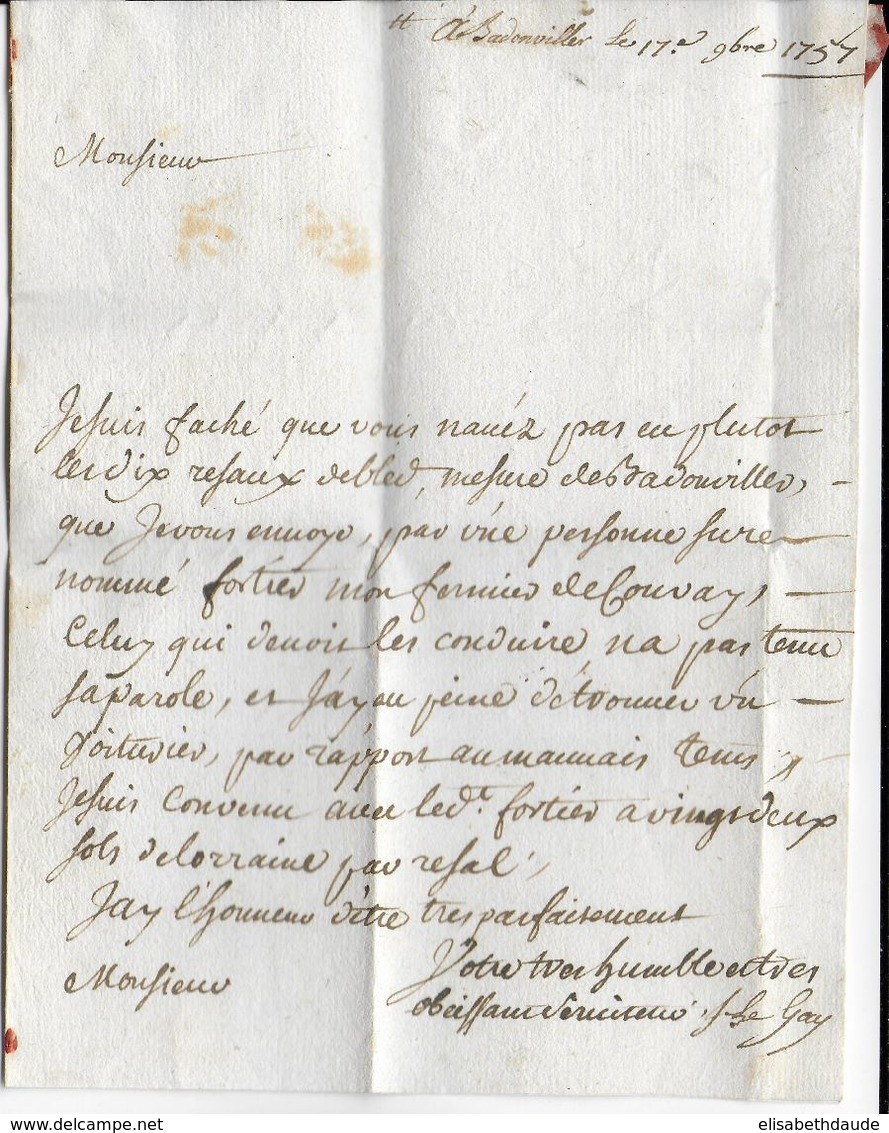 A Badonviller Le 17.e 9bre 1757
Monsieur
Jesuis faché que vous navéz pas eu plutot
les dix resaux debled, mesure de Badonviller,
que Jevous envoye, par vne personne sure
nommé fortier mon fermier de Couvay,
Celuy qui devoit les conduire na pas tenu
saparole, et J'ay eu peine détrouver vn
Voiturier, par rapport aumauvais tems,
Jesuis Convenu avec led.t fortier avingtdeux
sols delorraine par resal,
Jay l'honneur dêtre tres parfaitement
Monsieur
Votre tres humble et tres
obeissant Serviteur Le Gay
elisabethdaude